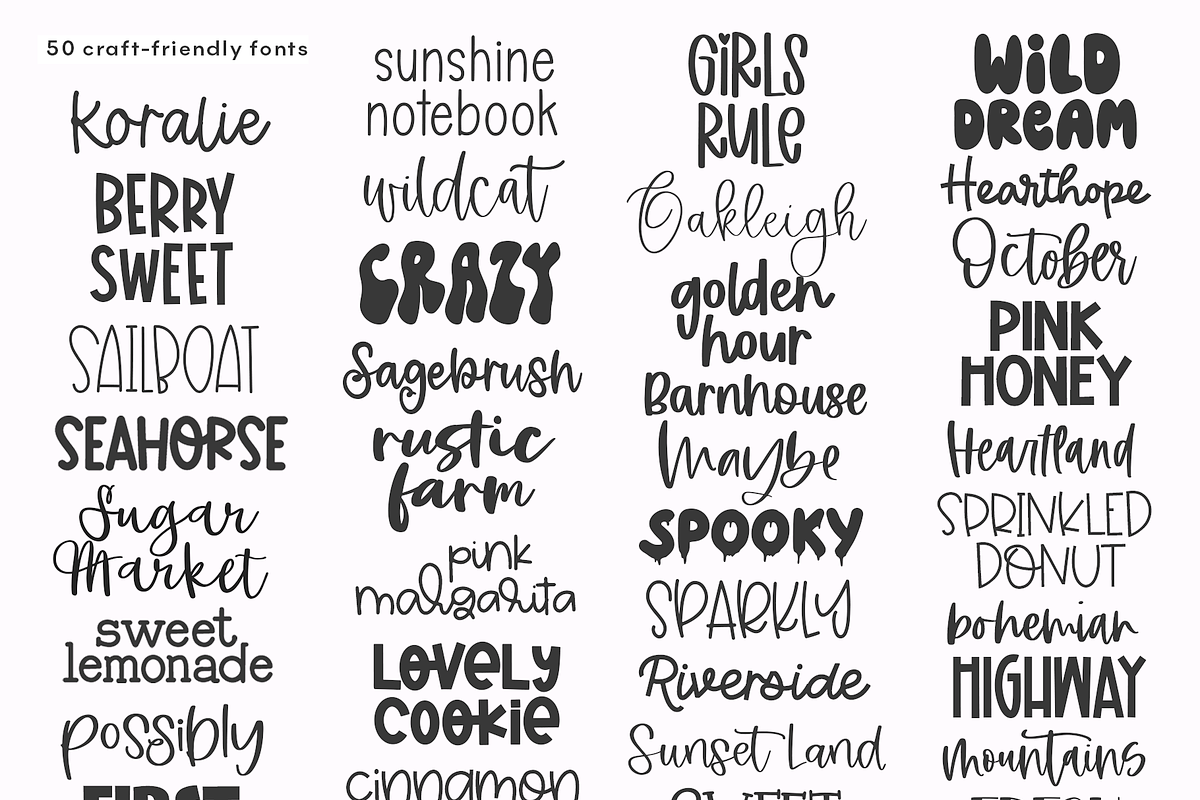 50 craft-friendly fonts
Koralie
BERRY
SWEET
SAILBOAT
SEAHORSE
Sugar
Market
sweet
lemonade
possibly
FIRST
sunshine
notebook
wildcat
CRAZY
Sagebrush
rustic
farm
pink
margarita
LOVELY
COOKIE
cinnamon
GiRLS
RULe
Oakleigh
golden
hour
Barnhouse
Maybe
SPOOKY
SPARKLY
Riverside
Sunset Land
SWEET
WiLD
DReAM
Hearthope
October
PINK
HONEY
Heartland
SPRINKLED
DONUT
bohemian
HIGHWAY
mountains
FRESH